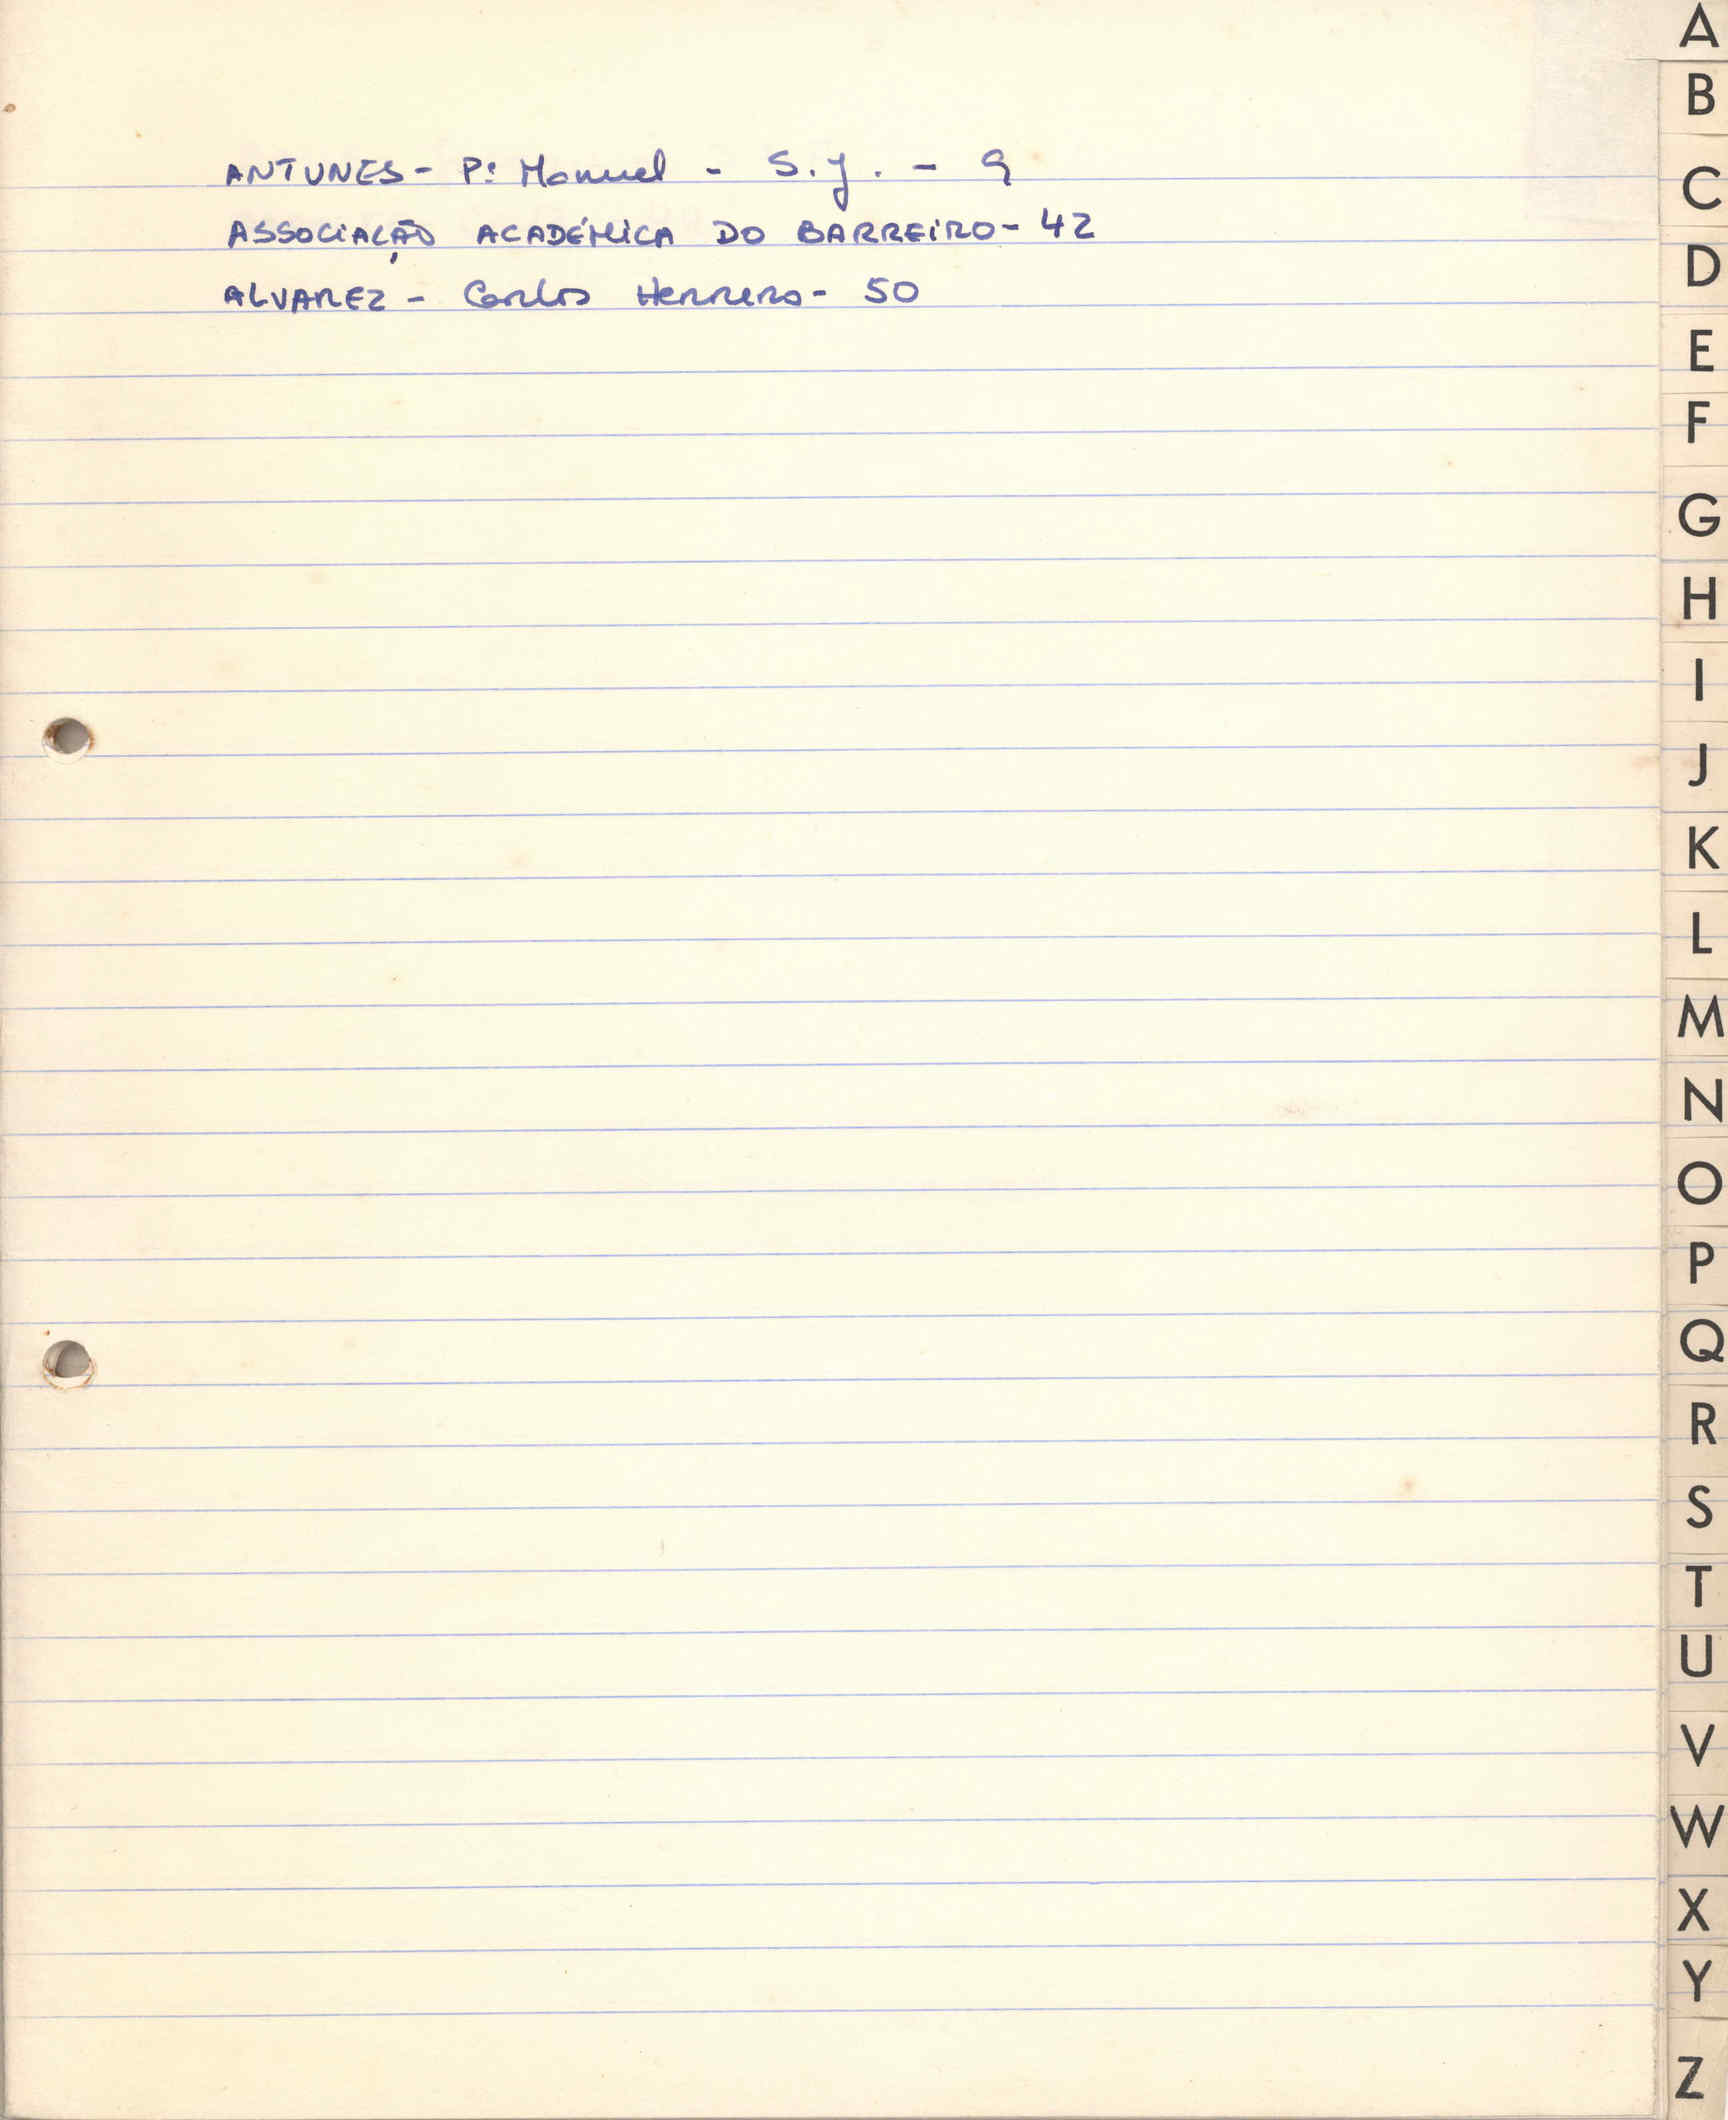 ANTUNES - P: Manuel - S.J. - 9
ASSOCIAÇÃO ACADÉMICA DO BARREIRO - 42
ALVAREZ - Carlos Herrero - 50
A
B
C
D
E
F
G
H
I
J
K
L
M
N
O
P
Q
R
S
T
U
V
W
X
Y
Z